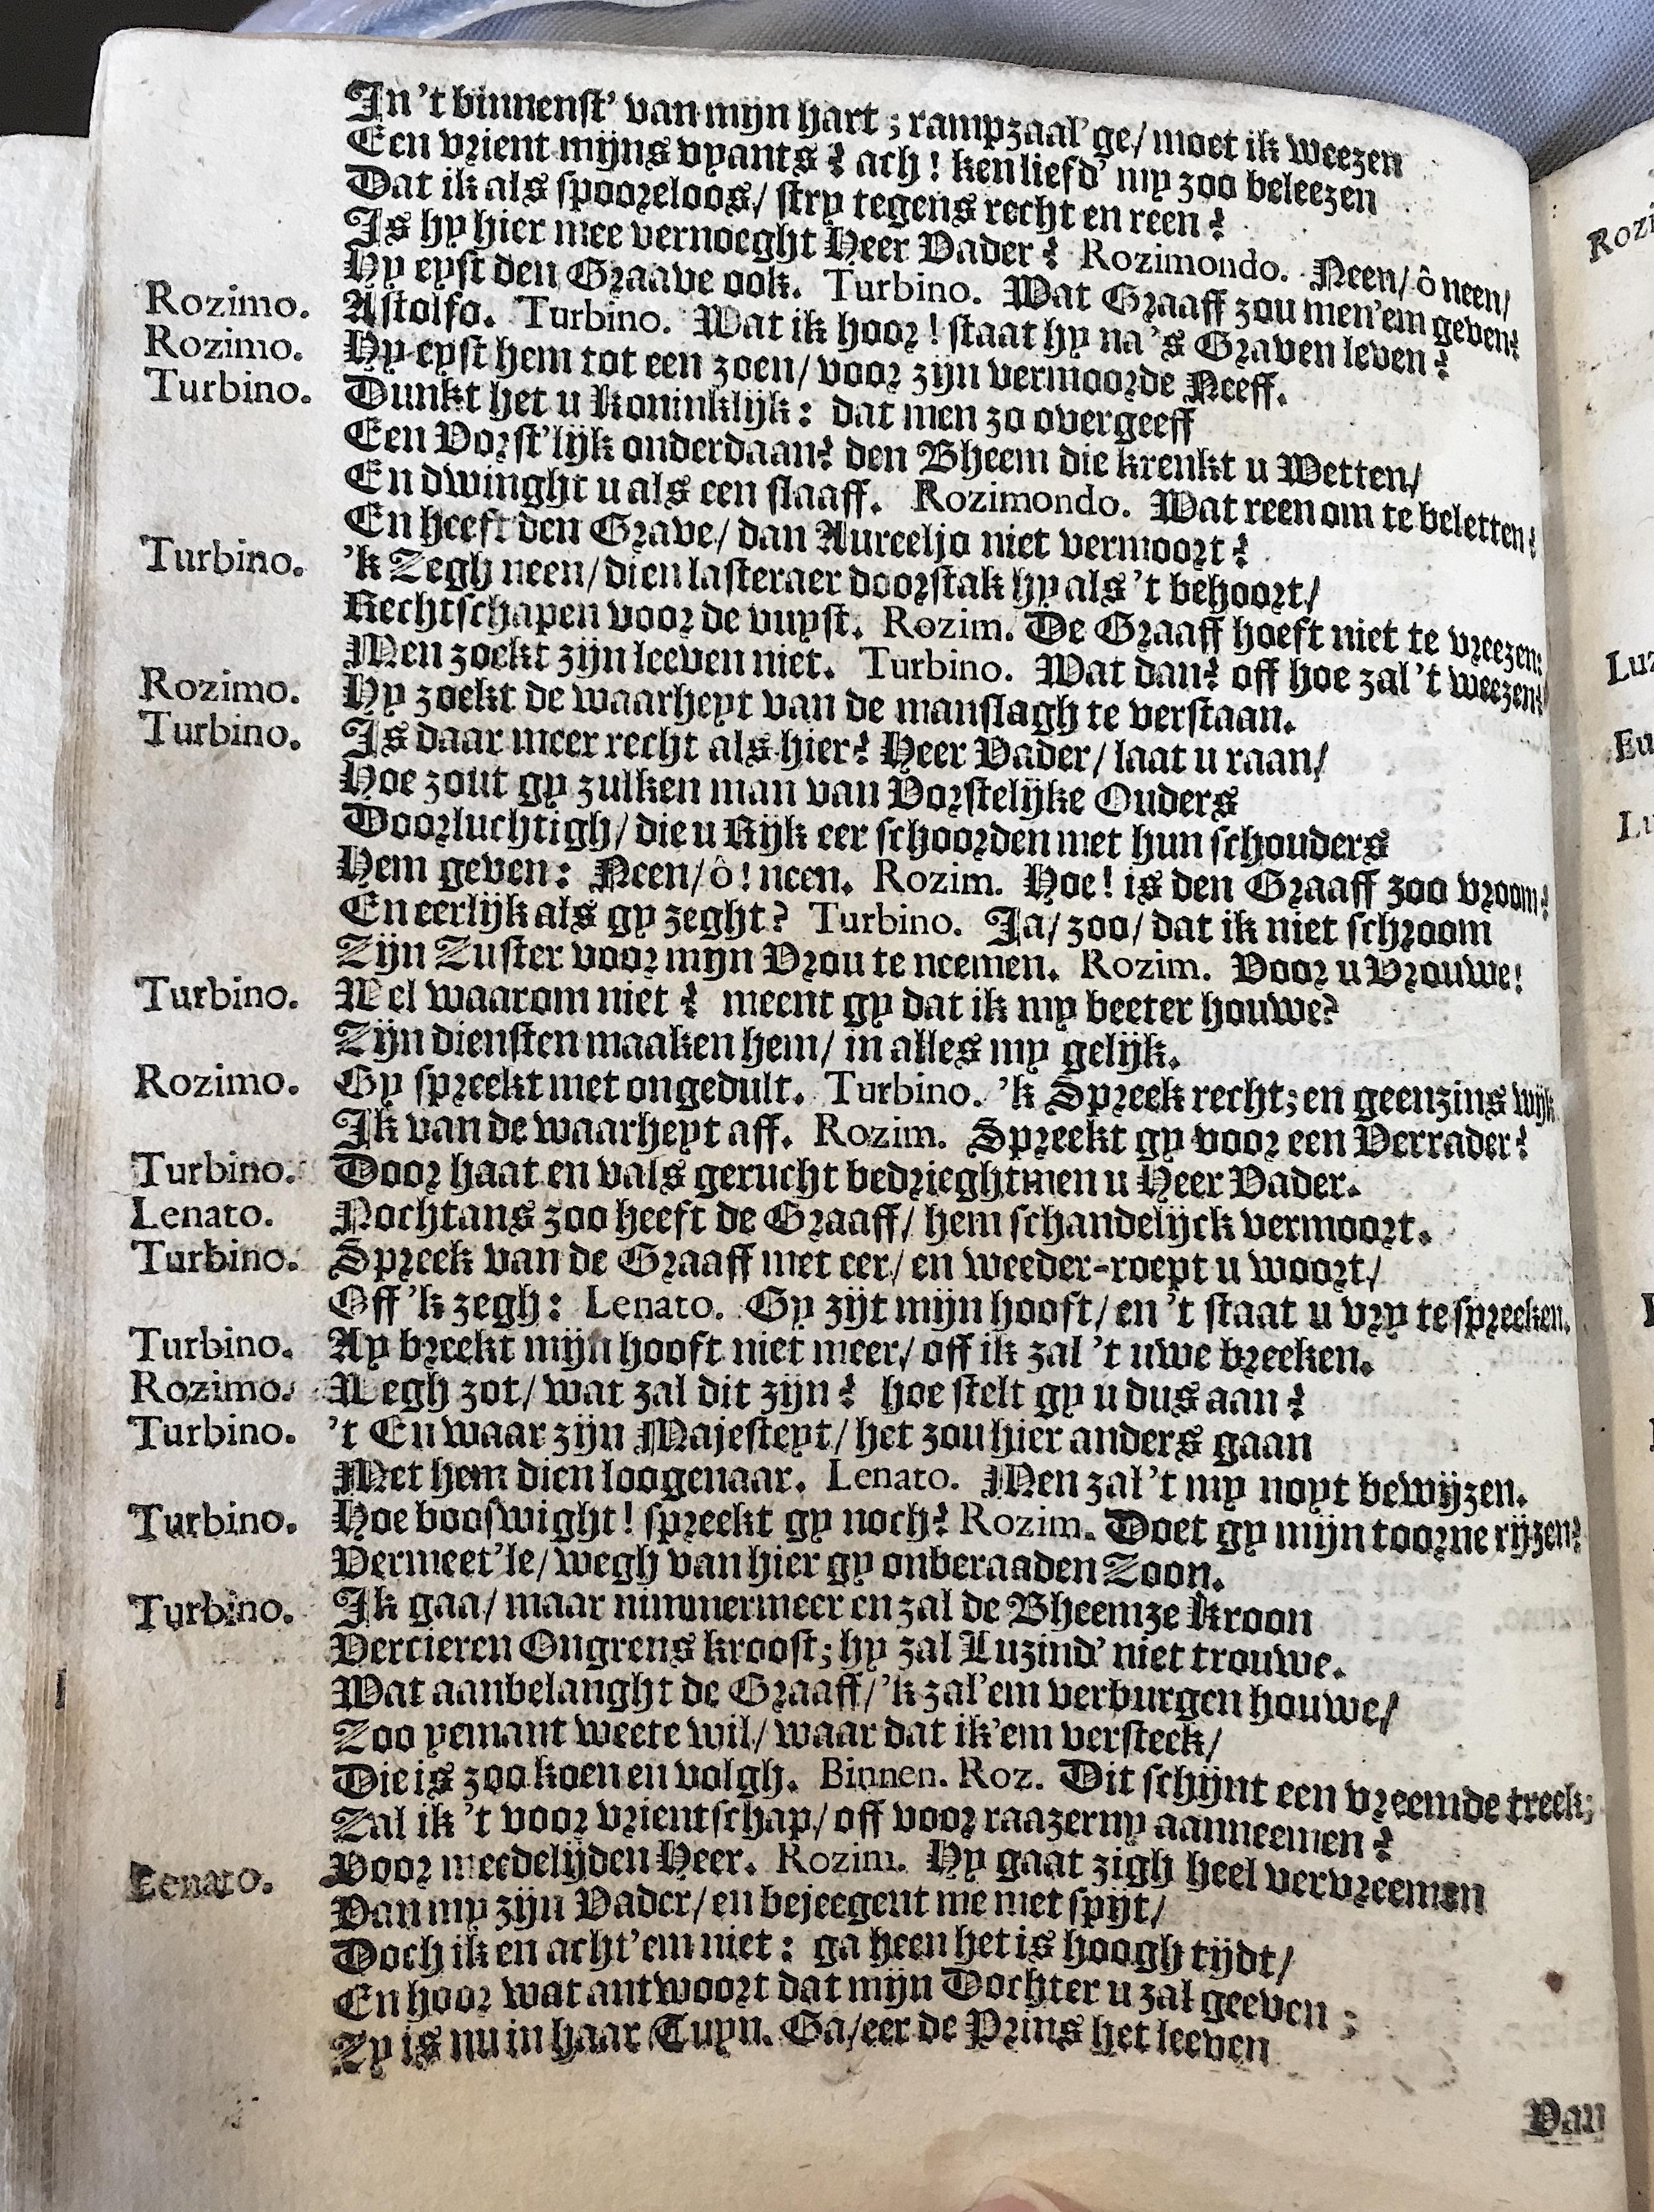 In 't binnenst' van mijn hart ; rampzaal'ge/ moet ik weezen
Een vrient mijns vyants? ach! ken liefd' my zoo beleezen
Dat ik als spooreloos/ stry tegens recht en reen?
Is hy hier mee vernoeght Heer Vader? Rozimondo. Neen/ ô neen/
Hy eyst den Graave ook. Turbino. Wat Graaff zou men'em geven?
Rozimo. Astolfo. Turbino. Wat ik hoor! staat hy na 's Graven leven?
Rozimo. Hy eyst hem tot een zoen/ voor zijn vermoorde Neeff.
Turbino. Dunkt het u Koninklijk: dat men zo overgeeff
Een Vorst'lijk onderdaan? den Bheem die krenkt u Wetten/
En dwinght u als een slaaff. Rozimondo. Wat reen om te beletten?
En heeft den Grave/ dan Aureelio niet vermoort?
Turbino. 'k Zegh neen/ dien lasteraer doorstak hy als 't behoort/
Rechtschapen voor de vuyst. Rozim. De Graaff hoeft niet te vreezen:
Men zoekt zijn leeven niet. Turbino. Wat dan? off hoe zal 't weezen?
Rozimo. Hy zoekt de waarheyt van de manslagh te verstaan.
Turbino. Is daar meer recht als hier? Heer Vader/ laat u raan/
Hoe zout gy zulken man van Vorstelijke Ouders
Doorluchtigh/ die u Rijk eer schoorden met hun schouders
Hem geven: Neen/ ô! neen. Rozim. Hoe! is den Graaff zoo vroom?
En eerlijk als gy zeght? Turbino. Ja/ zoo/ dat ik niet schroom
Zijn Zuster voor mijn Vrou te neemen. Rozim. Voor u Vrouwe!
Turbino. Wel waarom niet? meent gy dat ik my beeter houwe?
Zijn diensten maaken hem/ in alles my gelijk.
Rozimo. Gy spreekt met ongedult. Turbino. 'k Spreek recht; en geenzins wijk
Ik van de waarheyt aff. Rozim. Spreekt gy voor een Verrader?
Turbino. Door haat en vals gerucht bedrieghtmen u Heer Vader.
Lenato. Nochtans zoo heeft de Graaff/ hem schandelijck vermoort.
Turbino. Spreek van de Graaff met eer/ en weeder-roept u woort/
Off 'k zegh: Lenato. Gy zijt mijn hooft/ en 't staat u vry te spreeken.
Turbino. Ay breekt mijn hooft niet meer/ off ik zal 't uwe breeken.
Rozimo. Wegh zot/ wat zal dit zijn? hoe stelt gy u dus aan?
Turbino. 't En waar zijn Majesteyt/ het zou hier anders gaan
Met hem dien loogenaar. Lenato. Men zal 't my noyt bewijzen.
Turbino. Hoe booswight! spreekt gy noch? Rozim. Doet gy mijn toorne rijzen?
Vermeet'le/ wegh van hier gy onberaaden Zoon.
Turbino. Ik gaa/ maar nimmermeer en zal de Bheemze Kroon
Vercieren Ongrens kroost; hy zal Luzind' niet trouwe.
Wat aanbelanght de Graaff/ 'k zal'em verburgen houwe/
Zoo yemant weete wil/ waar dat ik'em versteek/
Die is zoo koen en volgh. Binnen. Roz. Dit schijnt een vreemde treek;
Zal ik 't voor vrientschap/ off voor raazerny aanneemen?
Lenato. Voor meedelijden Heer. Rozim. Hy gaat zigh heel vervreemen
Van my zijn Vader/ en bejeegent me met spijt/
Doch ik en acht'em niet: ga heen het is hoogh tijdt/
En hoor wat antwoort dat mijn Dochter u zal geeven ;
Zy is nu in haar Tuyn. Ga/ eer de Prins het leeven
Van
Rozi
Luz
Eu
Lu